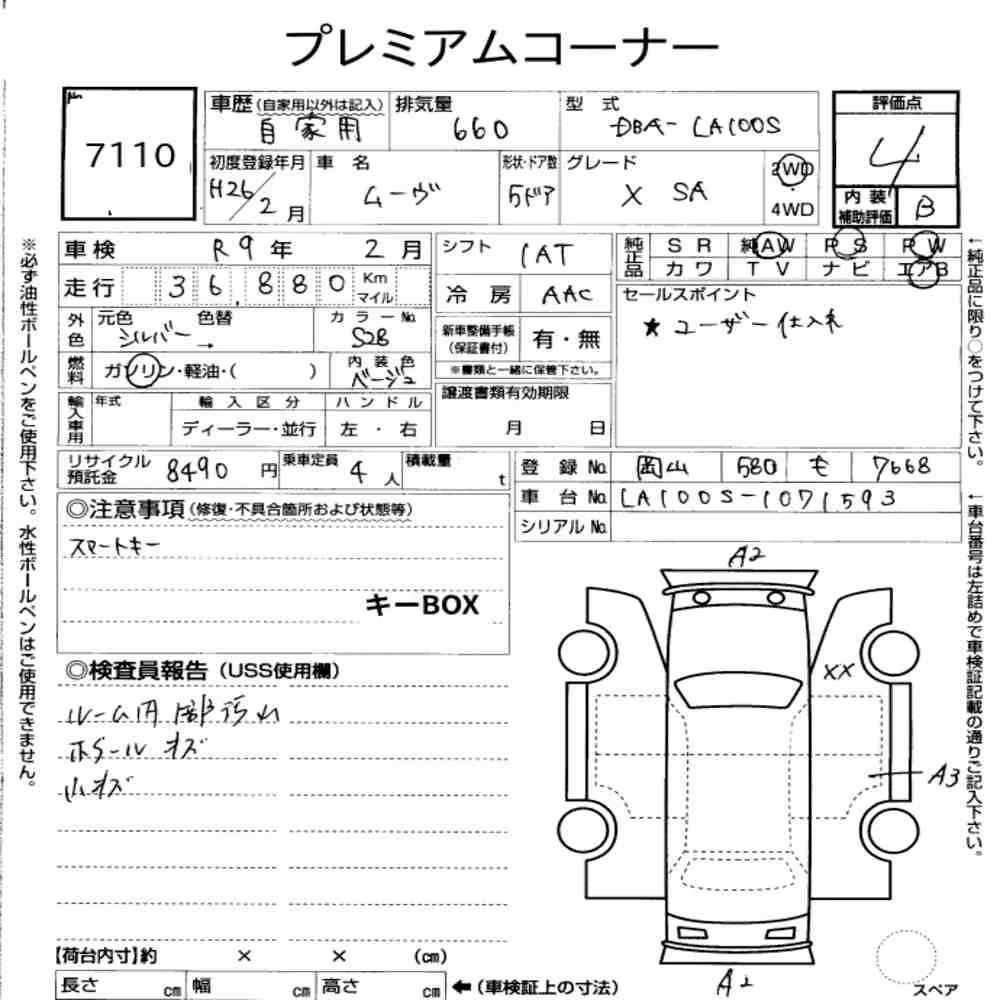 プレミアムコーナー
7110
車歴(自家用以外は記入) 排気量 型 式 評価点
自家用 660 DBA-LA100S 4
初度登録年月 車 名 形状・ドア数 グレード 2WD
H26/2月 ムーヴ 5ドア X SA ・ 4WD
内装補助評価 B
車検 R9年 2月 シフト 1AT
純正品 SR 純AW PS PW
カワ TV ナビ エアB
走行 36,880 Km マイル 冷房 AAC
セールスポイント
★ユーザー仕入れ
外色 元色 色替 カラーNo.
シルバー → S28
新車整備手帳(保証書付) 有・無
※書類と一緒に保管下さい。
燃料 ガソリン・軽油・( ) 内装色 ベージュ
譲渡書類有効期限
月 日
輸入車用 年式 輸入区分 ハンドル
ディーラー・並行 左・右
リサイクル預託金 8490円 乗車定員 4人 積載量 t
登録No. 岡山 580 も 7668
車台No. LA100S-1071593
シリアルNo.
◎注意事項(修復・不具合箇所および状態等)
スマートキー
キーBOX
◎検査員報告(USS使用欄)
ルーム内部汚れ
ホイールキズ
小キズ
A2
XX
A3
A2
スペア
【荷台内寸】約 × × (cm)
長さ cm 幅 cm 高さ cm ←(車検証上の寸法)
※必ず油性ボールペンをご使用下さい。水性ボールペンはご使用できません。
←純正品に限り○をつけて下さい。
←車台番号は左詰めで車検証記載の通りご記入下さい。